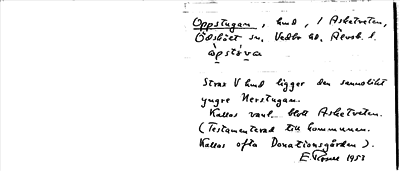 Oppstugan, hmd, i Asketveten,
Ödskölt sn. Vedbo hd. Älvsb. l.
åpstóva
Strax V hmd ligger den sannolikt
yngre Nerstugan.
Kallas vanl. blott Asketveten.
(Testamenterad till kommunen.
Kallas ofta Donationsgården).
E. 1953